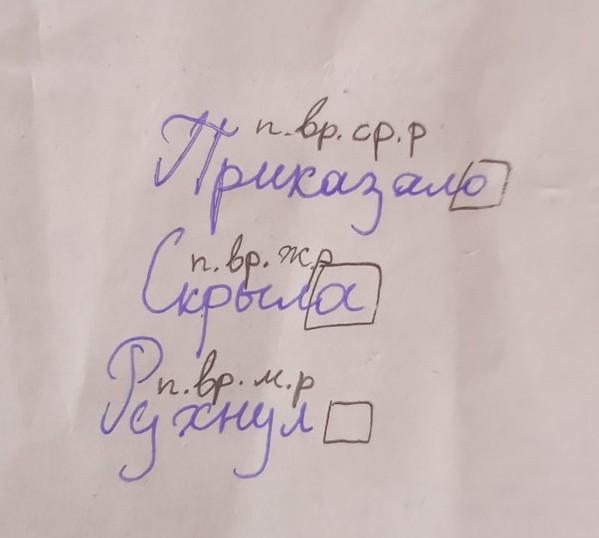 п.вр.ср.р
Приказало
п.вр.ж.р
Скрыла
п.вр.м.р
Рухнул